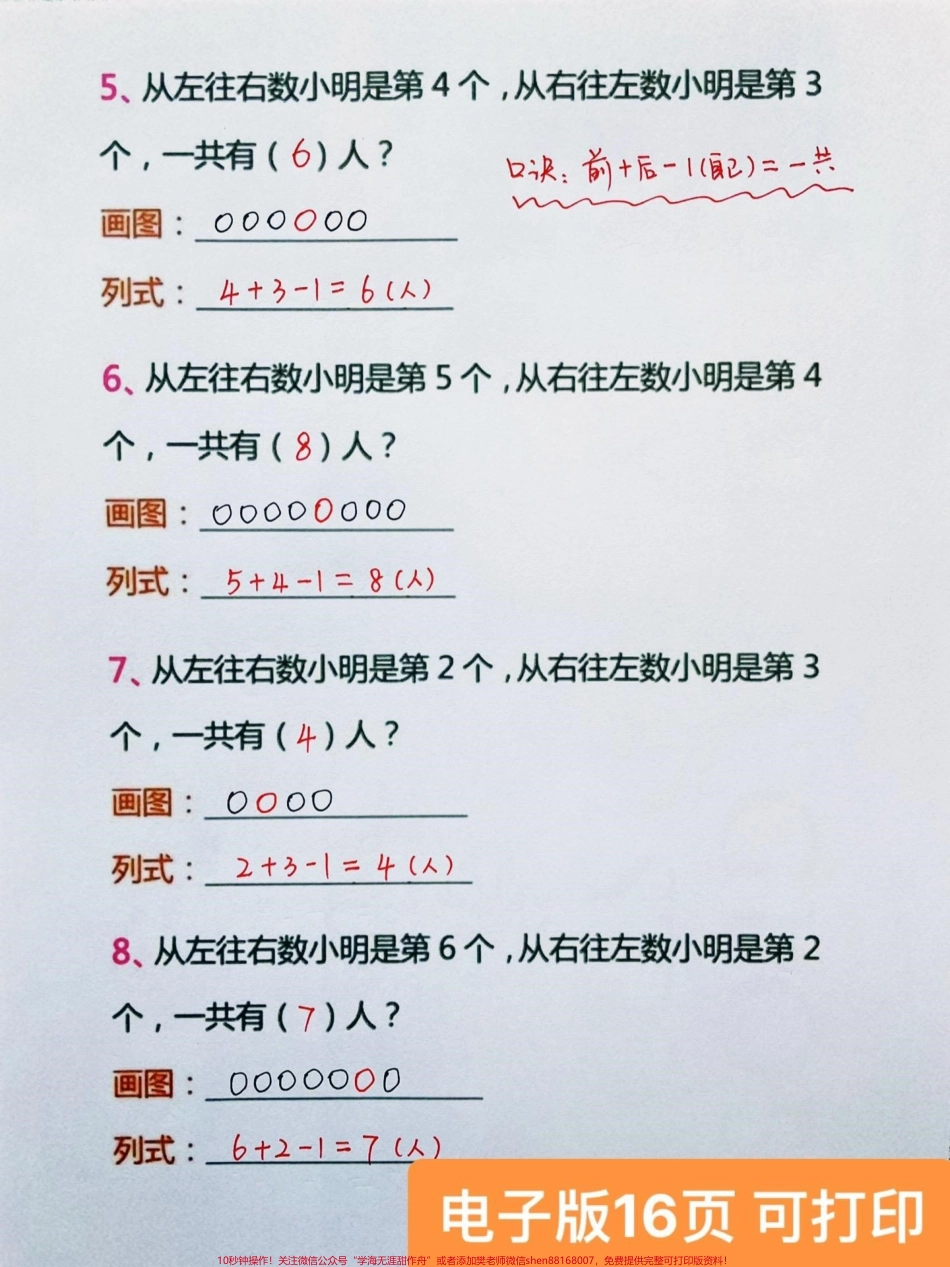 5、从左往右数小明是第 4 个，从右往左数小明是第 3
个，一共有（6）人？
口诀：前+后-1(自己)=一共
画图：000000
列式：4+3-1=6(人)
6、从左往右数小明是第 5 个，从右往左数小明是第 4
个，一共有（8）人？
画图：00000000
列式：5+4-1=8(人)
7、从左往右数小明是第 2 个，从右往左数小明是第 3
个，一共有（4）人？
画图：0000
列式：2+3-1=4(人)
8、从左往右数小明是第 6 个，从右往左数小明是第 2
个，一共有（7）人？
画图：0000000
列式：6+2-1=7(人)
电子版16页 可打印
10秒钟操作！关注微信公众号“学海无涯甜作舟”或者添加樊老师微信shen88168007，免费提供完整可打印版资料！